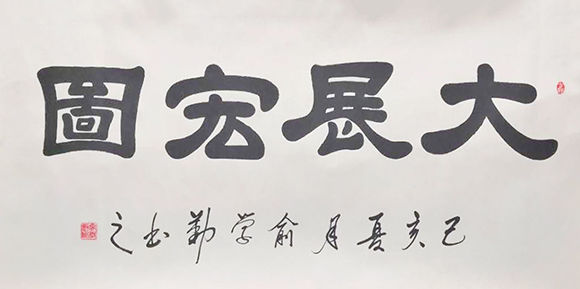 大展宏圖
己亥夏月俞学勤书之